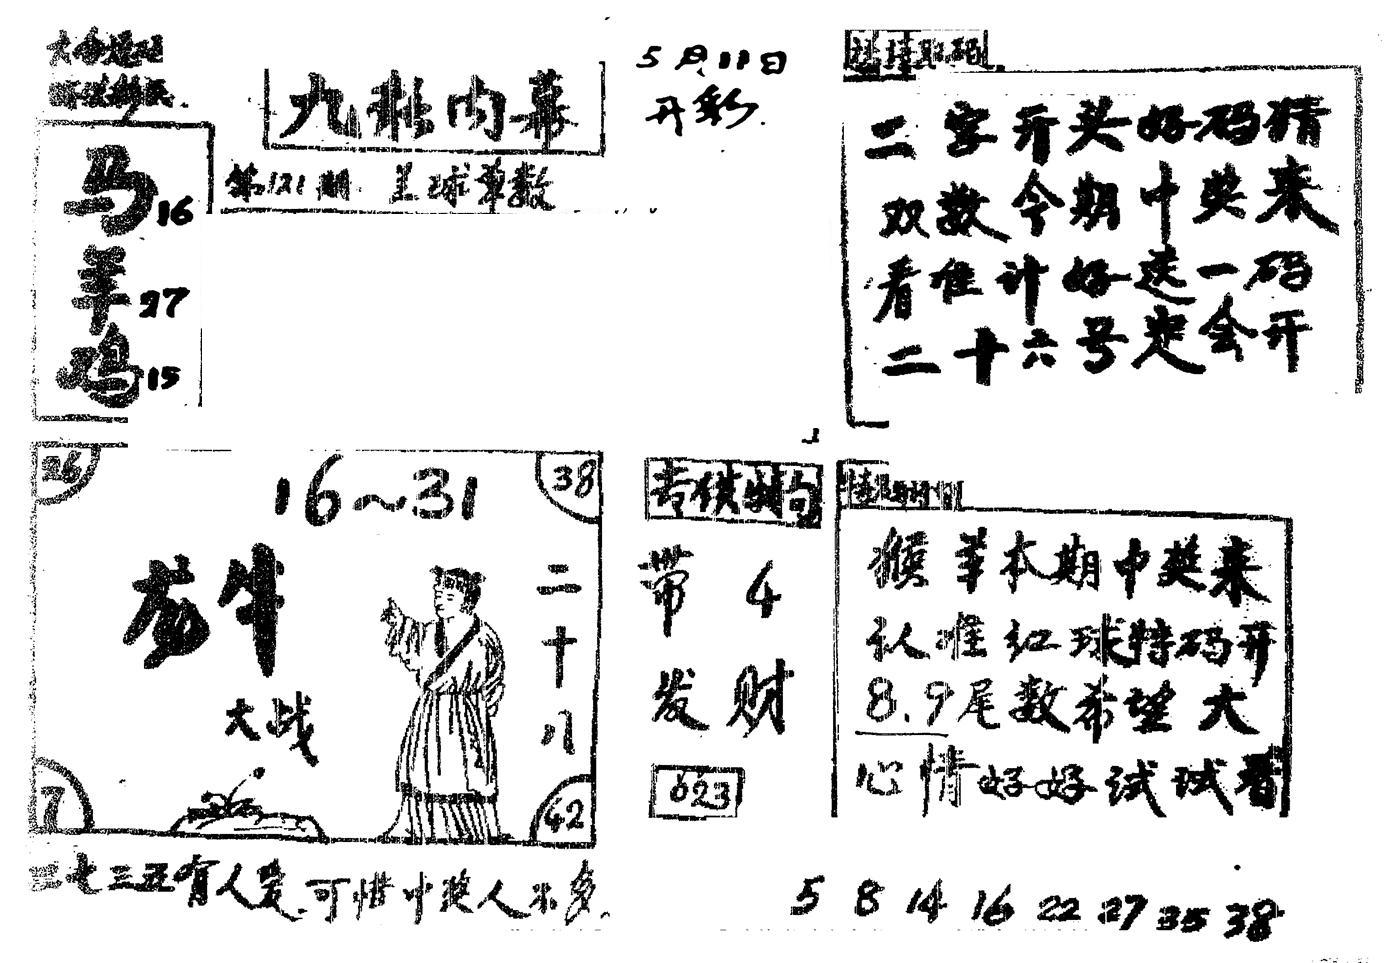 5月11日
开彩.
九彩内幕
第121期 兰球单数
马16
羊27
鸡15
二字开头好码猜
双数今期中奖来
看准计好送一码
二十六号定会开
26
16~31
38
龙牛
大战
二十八
7
42
二七三五有人爱.可惜中奖人不多.
带4
发财
623
猴羊本期中奖来
认准红球特码开
8.9尾数希望大
心情好好试试看
5 8 14 16 22 27 35 38